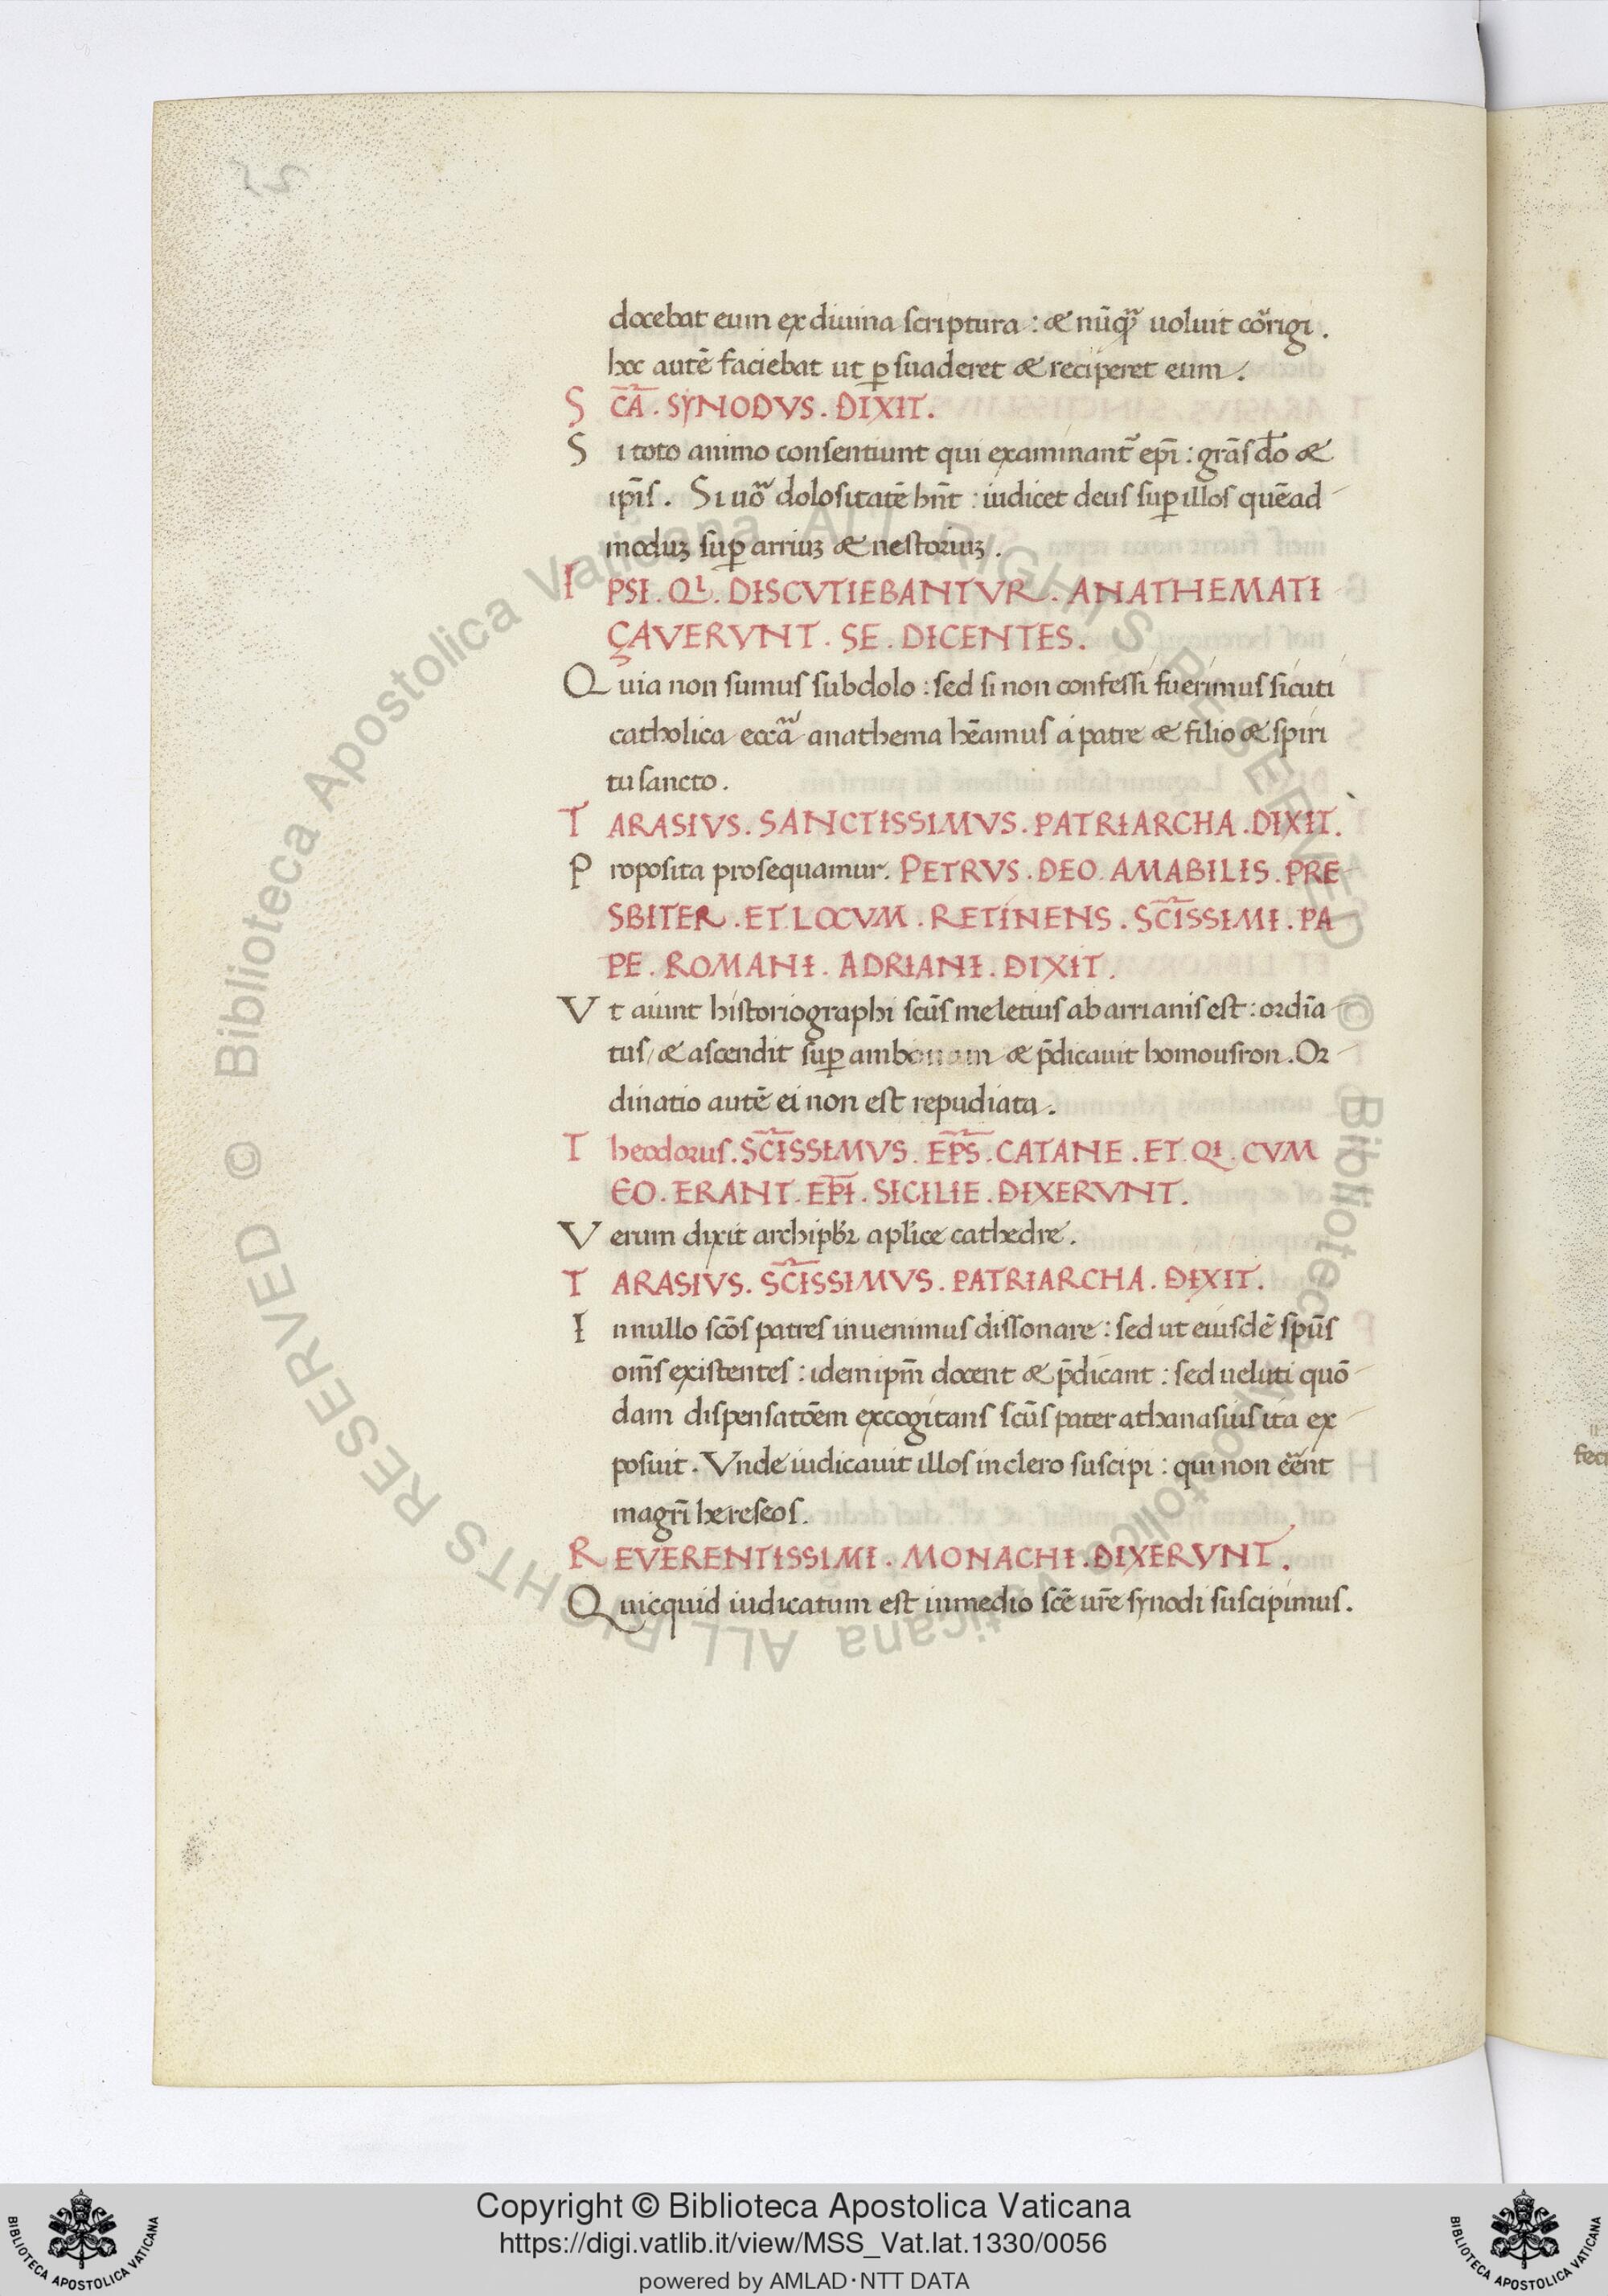 docebat eum ex diuina scriptura : & nūqᷓ uoluit cōrigi .
hoc autē faciebat ut ꝑ suaderet & reciperet eum .
S C̄A . SYNODVS . DIXIT .
S i toto animo consentiunt qui examinant̄ epī : grās d̄o &
ip̄is . Si uō dolositatē hn̄t : iudicet deus suꝑ illos quēad
moduꝫ suꝑ arriuꝫ & nestoriuꝫ .
I PSI . QI . DISCVTIEBANTVR . ANATHEMATI
ÇAVERVNT . SE . DICENTES .
Q uia non sumus subdolo : sed si non confessi fuerimus sicuti
catholica eccᷓa anathema hēamus á patre & filio & spiri
tu sancto .
T ARASIVS . SANCTISSIMVS . PATRIARCHA . DIXIT .
P roposita prosequamur . PETRVS . DEO . AMABILIS . PRE
SBITER . ET LOCVM . RETINENS . SC̄ISSIMI . PA
PE . ROMANI . ADRIANI . DIXIT .
V t aiunt historiographi scūs meletius ab arrianis est : ordīa
tus / & ascendit suꝑ ambonam & p̄dicauit homousion . Or
dinatio autē ei non est repudiata .
T heodorus . SC̄ISSIMVS . EP̄S . CATANE . ET QI . CVM
EO . ERANT . EP̄I . SICILIE . DIXERVNT .
V erum dixit archipb̄r apl̄ice cathedre .
T ARASIVS . SC̄ISSIMVS . PATRIARCHA . DIXIT .
I n nullo scōs patres inuenimus dissonare : sed ut eiusdē spūs
om̄s existentes : idem ipm̄ docent & p̄dicant : sed ueluti quō
dam dispensatōem excogitans scūs pater athanasius ita ex
posuit . Vnde iudicauit illos in clero suscipi : qui non eēnt
magr̄i hereseos .
R EVERENTISSIMI . MONACHI . DIXERVNT .
Q uicquid iudicatum est in medio scē ur̄e synodi suscipimus .
Copyright © Biblioteca Apostolica Vaticana
https://digi.vatlib.it/view/MSS_Vat.lat.1330/0056
powered by AMLAD·NTT DATA